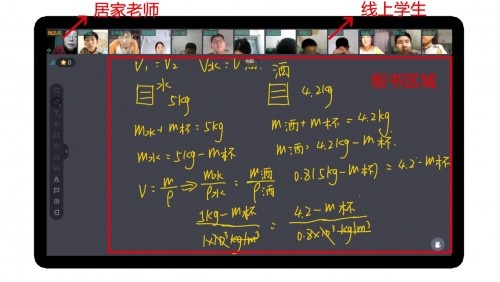 居家老师
线上学生
0
板书区域
V₁=V₂ V水=V酒
水 酒
5kg 4.2kg
m水+m杯=5kg m酒+m杯=4.2kg
m水=5kg-m杯 m酒=4.2kg-m杯
V=m/ρ⇒m水/ρ水=m酒/ρ酒 0.8(5kg-m杯)=4.2-m杯
1kg-m杯/1×10³kg/m³=4.2-m杯/0.8×10³kg/m³